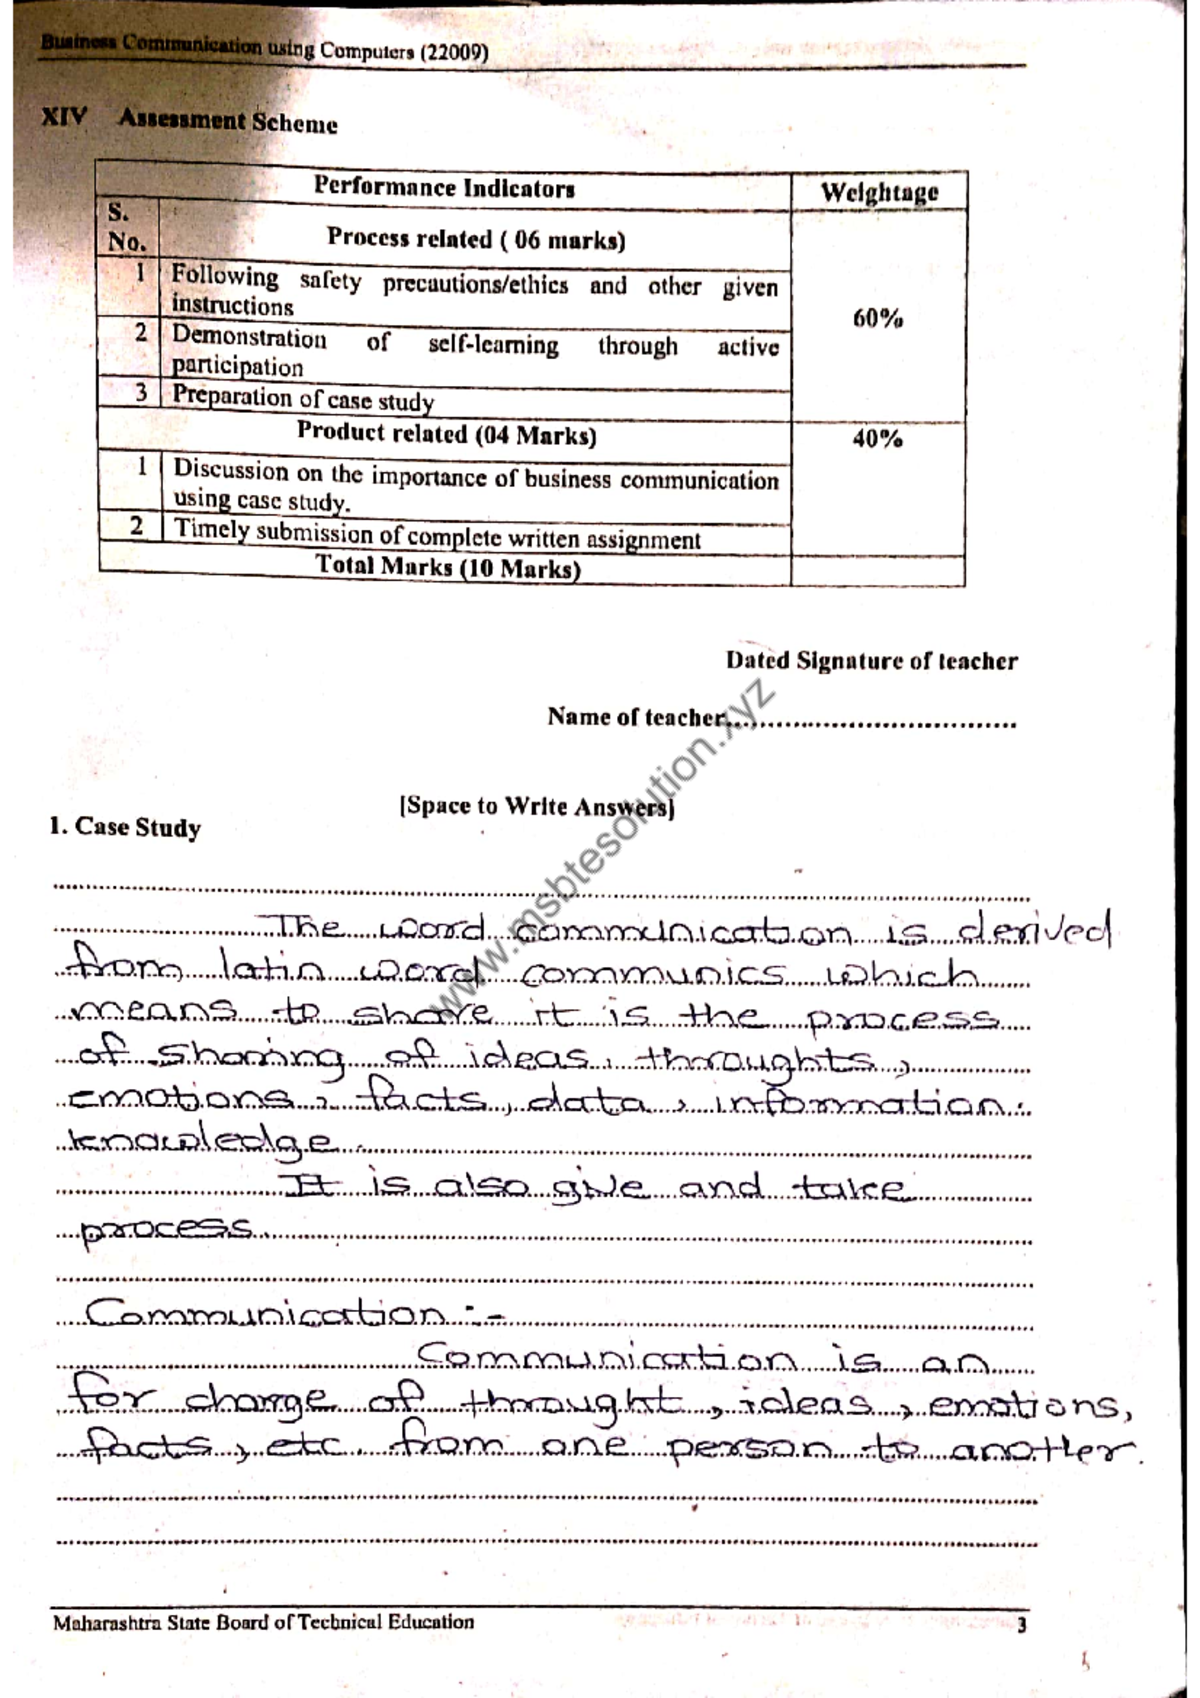 Business Communication using Computers (22009)
XIV Assessment Scheme
Performance Indicators Weightage
S. No. Process related ( 06 marks) 60%
1 Following safety precautions/ethics and other given
instructions
2 Demonstration of self-learning through active
participation
3 Preparation of case study
Product related (04 Marks) 40%
1 Discussion on the importance of business communication
using case study.
2 Timely submission of complete written assignment
Total Marks (10 Marks)
Dated Signature of teacher
Name of teacher....................................
[Space to Write Answers]
1. Case Study
The word communication is derived
from latin word communics which
means to share it is the process
of sharing of ideas, throughts,
emotions, facts, data, information.
knowledge.
It is also give and take
process.
Communication :-
Communication is an
for change of throught, ideas, emotions,
facts, etc from one person to another.
Maharashtra State Board of Technical Education 3
www.msbtesolution.xyz